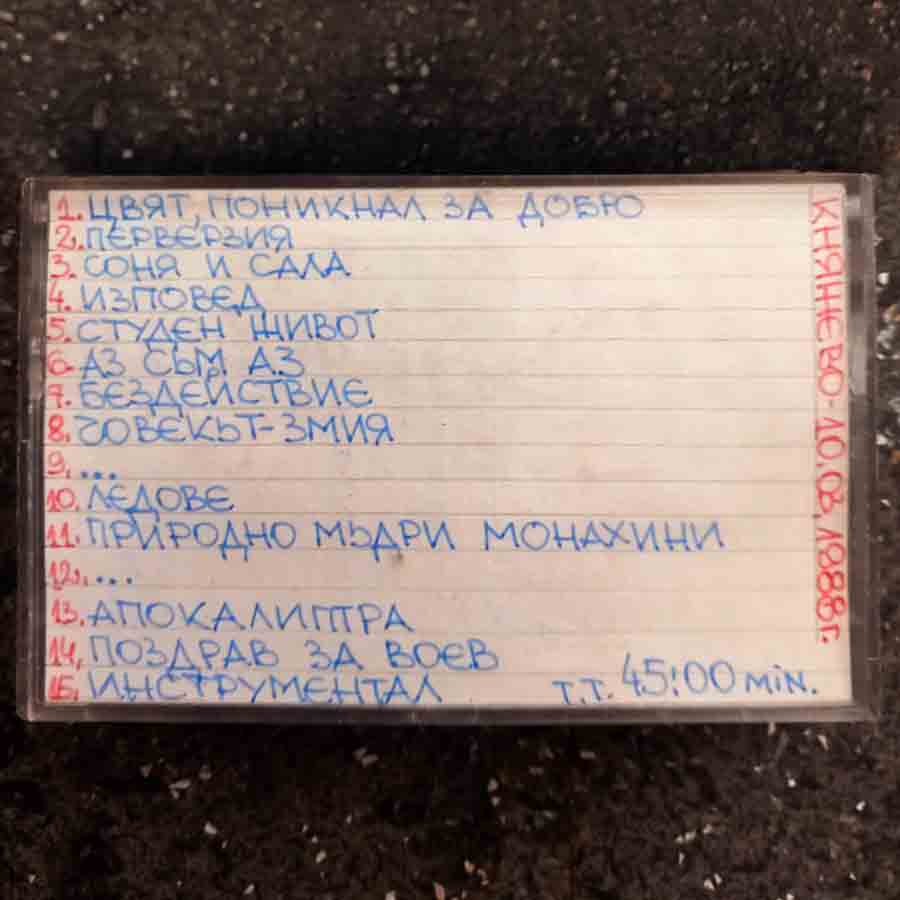 1. ЦВЯТ, ПОНИКНАЛ ЗА ДОБРО
2. ПЕРВЕРЗИЯ
3. СОНЯ И САЛА
4. ИЗПОВЕД
5. СТУДЕН ЖИВОТ
6. АЗ СЪМ АЗ
7. БЕЗДЕЙСТВИЕ
8. ЧОВЕКЪТ-ЗМИЯ
9. ...
10. ЛЕДОВЕ
11. ПРИРОДНО МЪДРИ МОНАХИНИ
12. ...
13. АПОКАЛИПТРА
14. ПОЗДРАВ ЗА ВОЕВ
15. ИНСТРУМЕНТАЛ
Т.Т. 45:00 MiN.
КНЯЖЕВО-10.08.1988г.